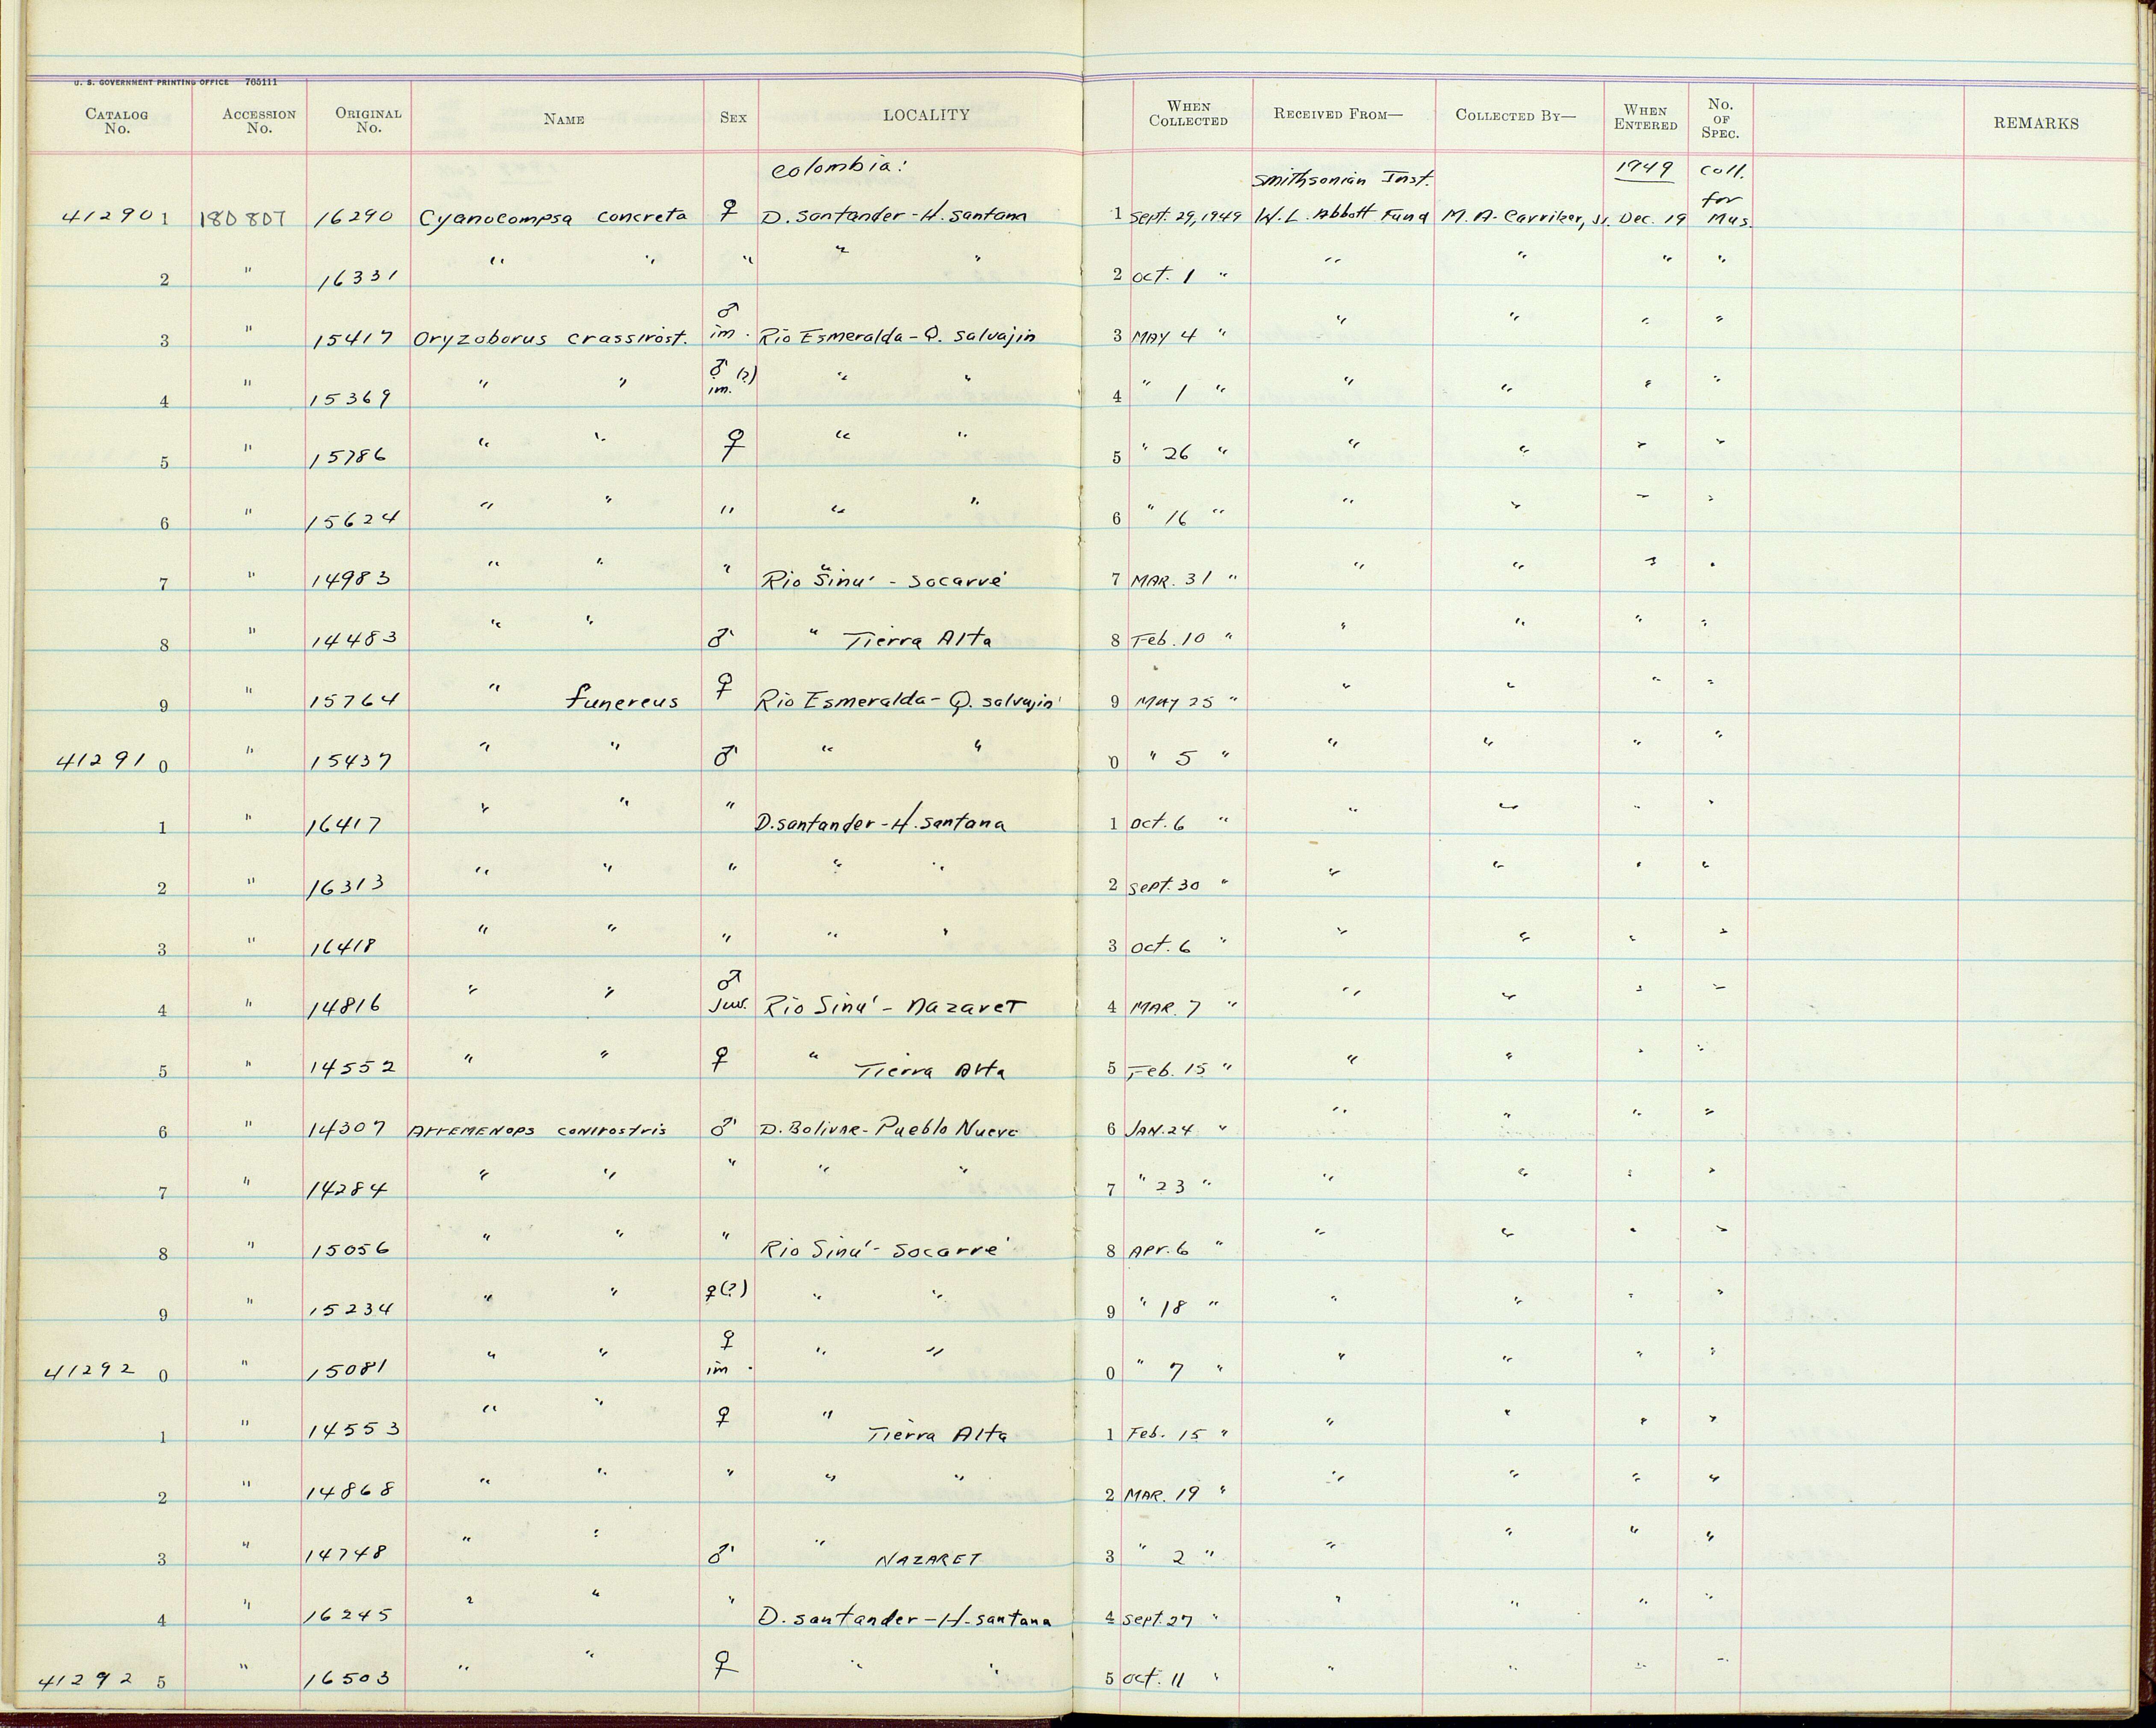 U. S. GOVERNMENT PRINTING OFFICE 765111
CATALOG No. ACCESSION No. ORIGINAL No. NAME SEX LOCALITY WHEN COLLECTED RECEIVED FROM— COLLECTED BY— WHEN ENTERED No. OF SPEC. REMARKS
Colombia: Smithsonian Inst. 1949 Coll. for
41290 1 180807 16290 Cyanocompsa concreta ♀ D. Santander - H. Santana 1 Sept. 29, 1949 W. L. Abbott Fund M. A. Carriker, Jr. Dec. 19 Mus.
2 " 16331 " " " " " 2 Oct. 1 " " " " "
3 " 15417 Oryzoborus crassirost. ♂ im. Rio Esmeralda - Q. Salvajin 3 MAY 4 " " " " "
4 " 15369 " " ♂ (?) im. " " 4 " 1 " " " " "
5 " 15786 " " ♀ " " 5 " 26 " " " " "
6 " 15624 " " " " " 6 " 16 " " " " "
7 " 14983 " " " Rio Sinú - Socarré 7 MAR. 31 " " " " "
8 " 14483 " " ♂ " Tierra Alta 8 Feb. 10 " " " " "
9 " 15764 " funereus ♀ Rio Esmeralda - Q. Salvajin 9 MAY 25 " " " " "
41291 0 " 15437 " " ♂ " " 0 " 5 " " " " "
1 " 16417 " " " D. Santander - H. Santana 1 Oct. 6 " " " " "
2 " 16313 " " " " " 2 Sept. 30 " " " " "
3 " 16418 " " " " " 3 Oct. 6 " " " " "
4 " 14816 " " ♂ Juv. Rio Sinú - Nazaret 4 MAR. 7 " " " " "
5 " 14552 " " ♀ " Tierra Alta 5 Feb. 15 " " " " "
6 " 14307 ARREMENOPS conirostris ♂ D. Bolivar - Pueblo Nuevo 6 JAN. 24 " " " " "
7 " 14284 " " " " " 7 " 23 " " " " "
8 " 15056 " " " Rio Sinú - Socarré 8 Apr. 6 " " " " "
9 " 15234 " " ♀(?) " " 9 " 18 " " " " "
41292 0 " 15081 " " ♀ im. " " 0 " 7 " " " " "
1 " 14553 " " ♀ " Tierra Alta 1 Feb. 15 " " " " "
2 " 14868 " " " " " 2 MAR. 19 " " " " "
3 " 14748 " " ♂ " NAZARET 3 " 2 " " " " "
4 " 16245 " " " D. Santander - H. Santana 4 Sept. 27 " " " " "
41292 5 " 16503 " " ♀ " " 5 Oct. 11 " " " " "